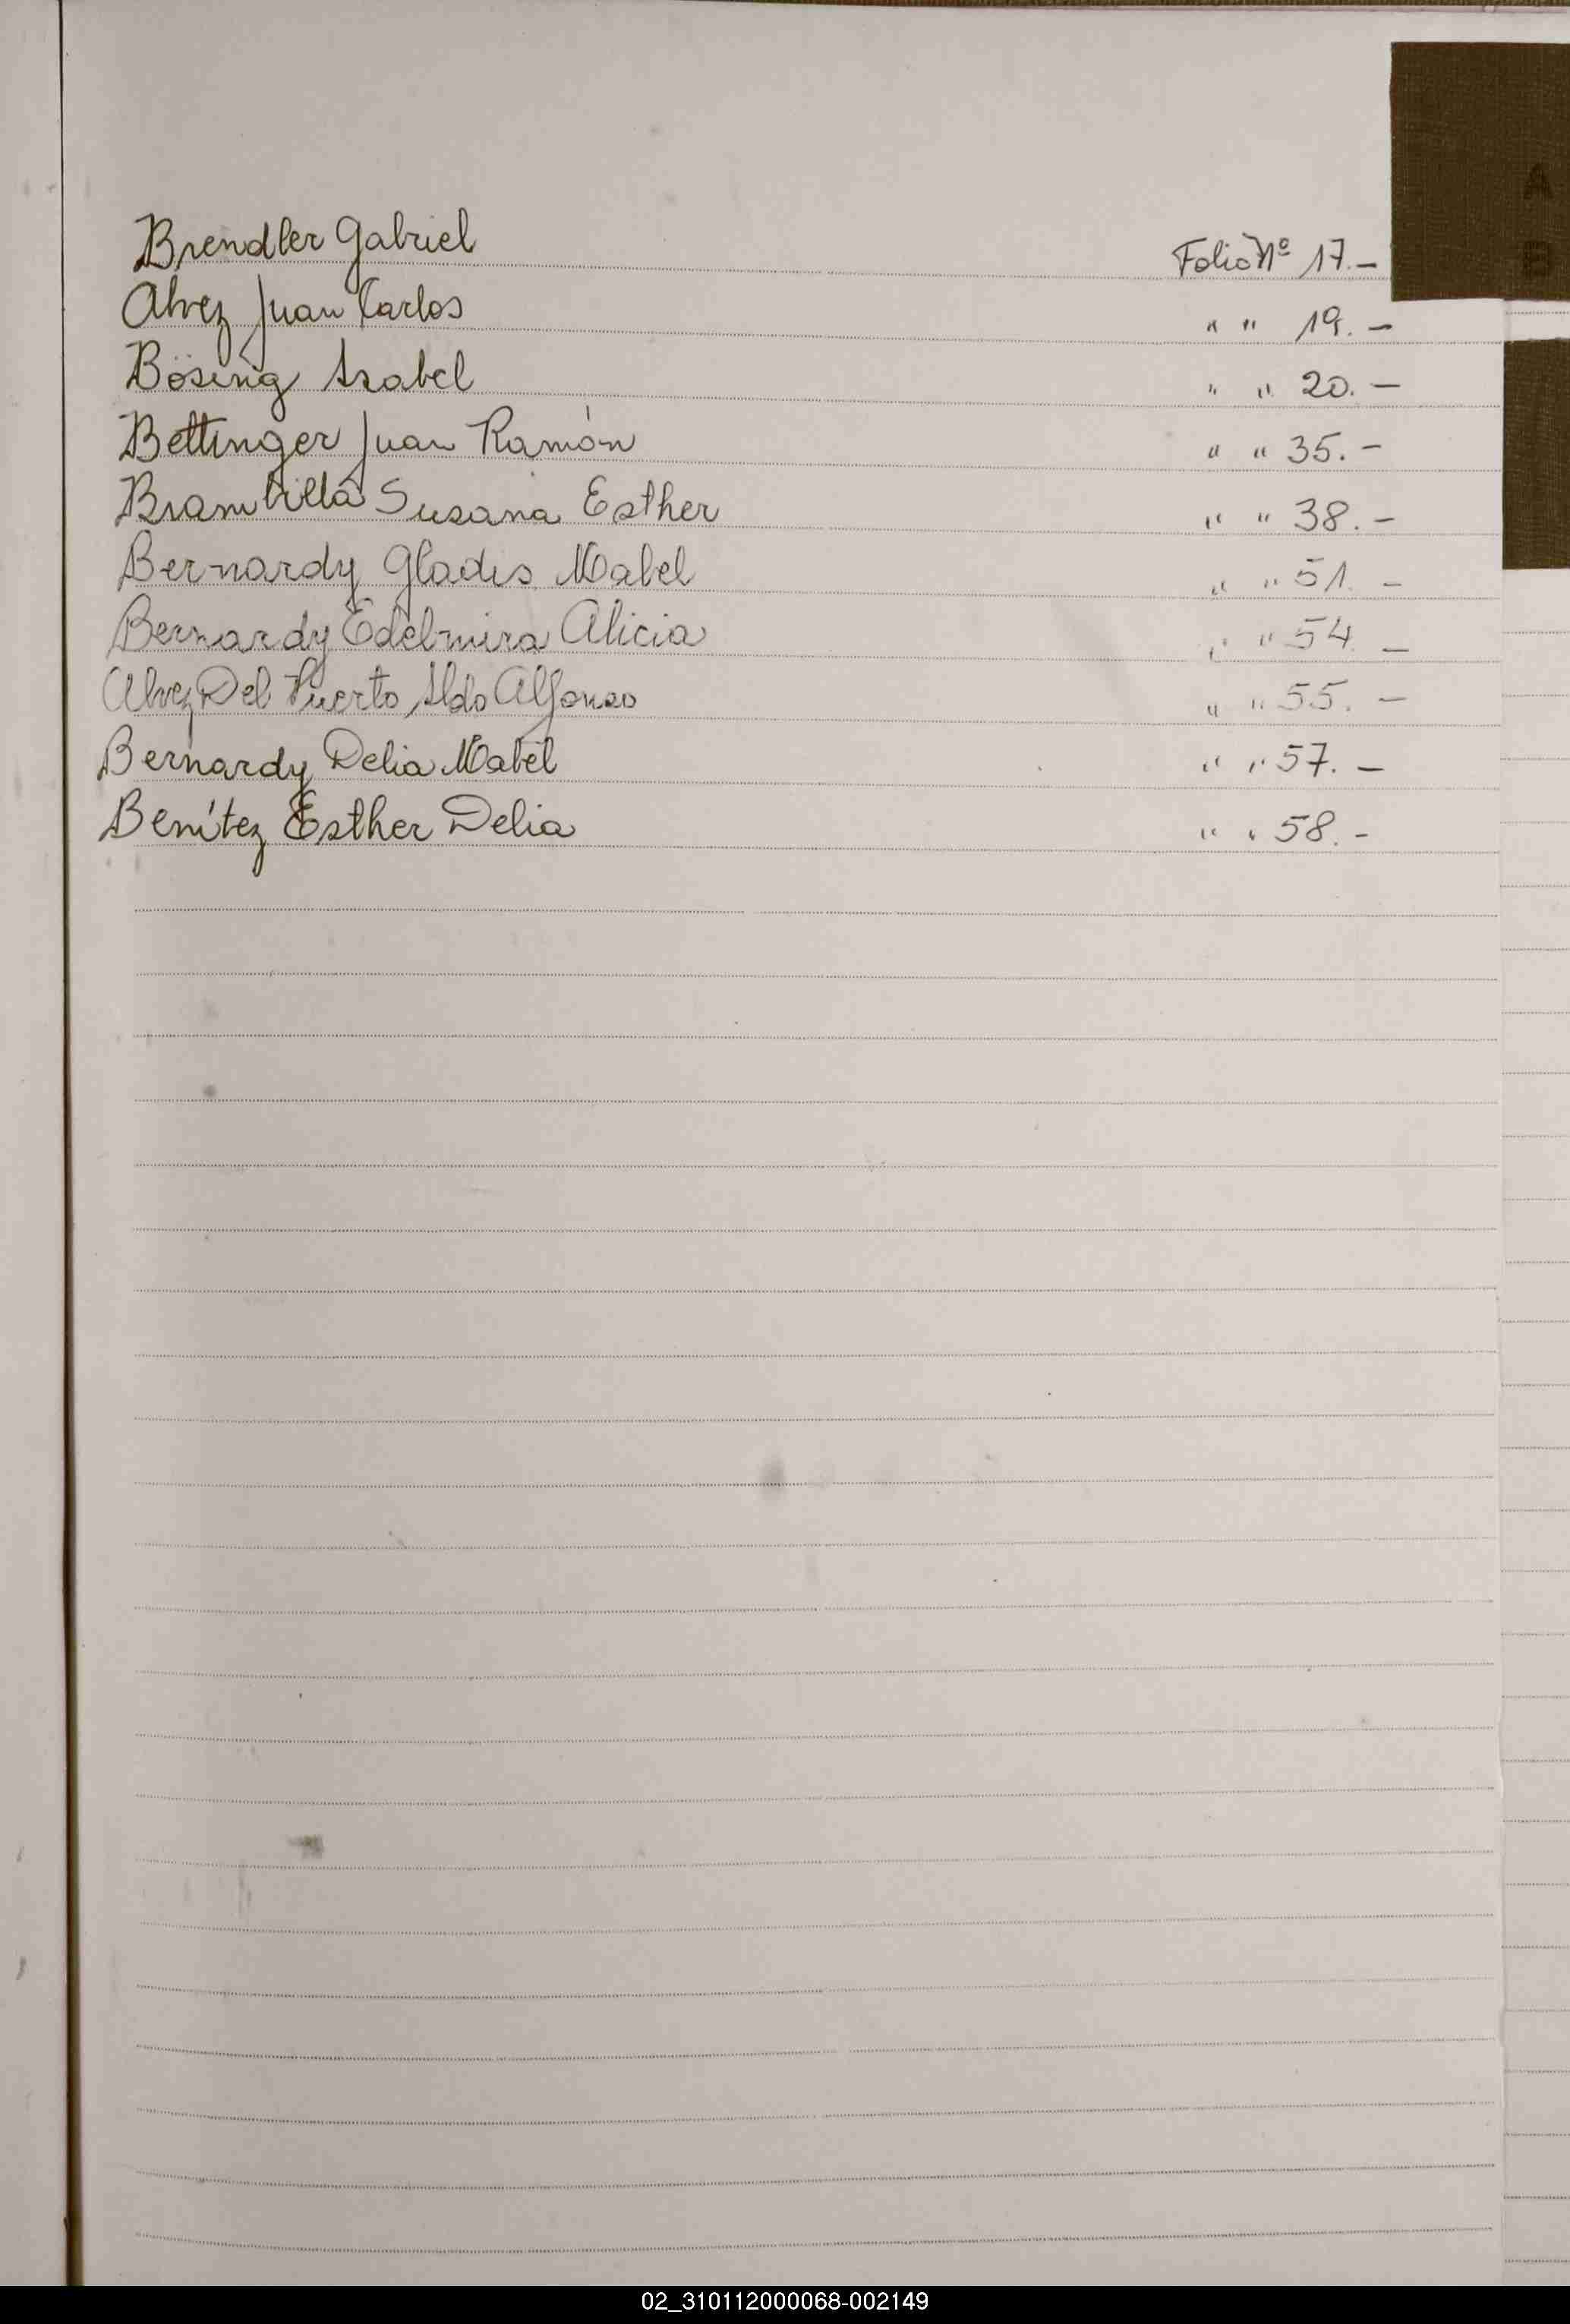 A
B
Brendler Gabriel Folio Nº 17.-
Alvez Juan Carlos " " 19.-
Bösing Isabel " " 20.-
Bettinger Juan Ramón " " 35.-
Brambilla Susana Esther " " 38.-
Bernardy Gladis Mabel " " 51.-
Bernardy Edelmira Alicia " " 54.-
Alvez Del Puerto Aldo Alfonso " " 55.-
Bernardy Delia Mabel " " 57.-
Benítez Esther Delia " " 58.-
02_310112000068-002149